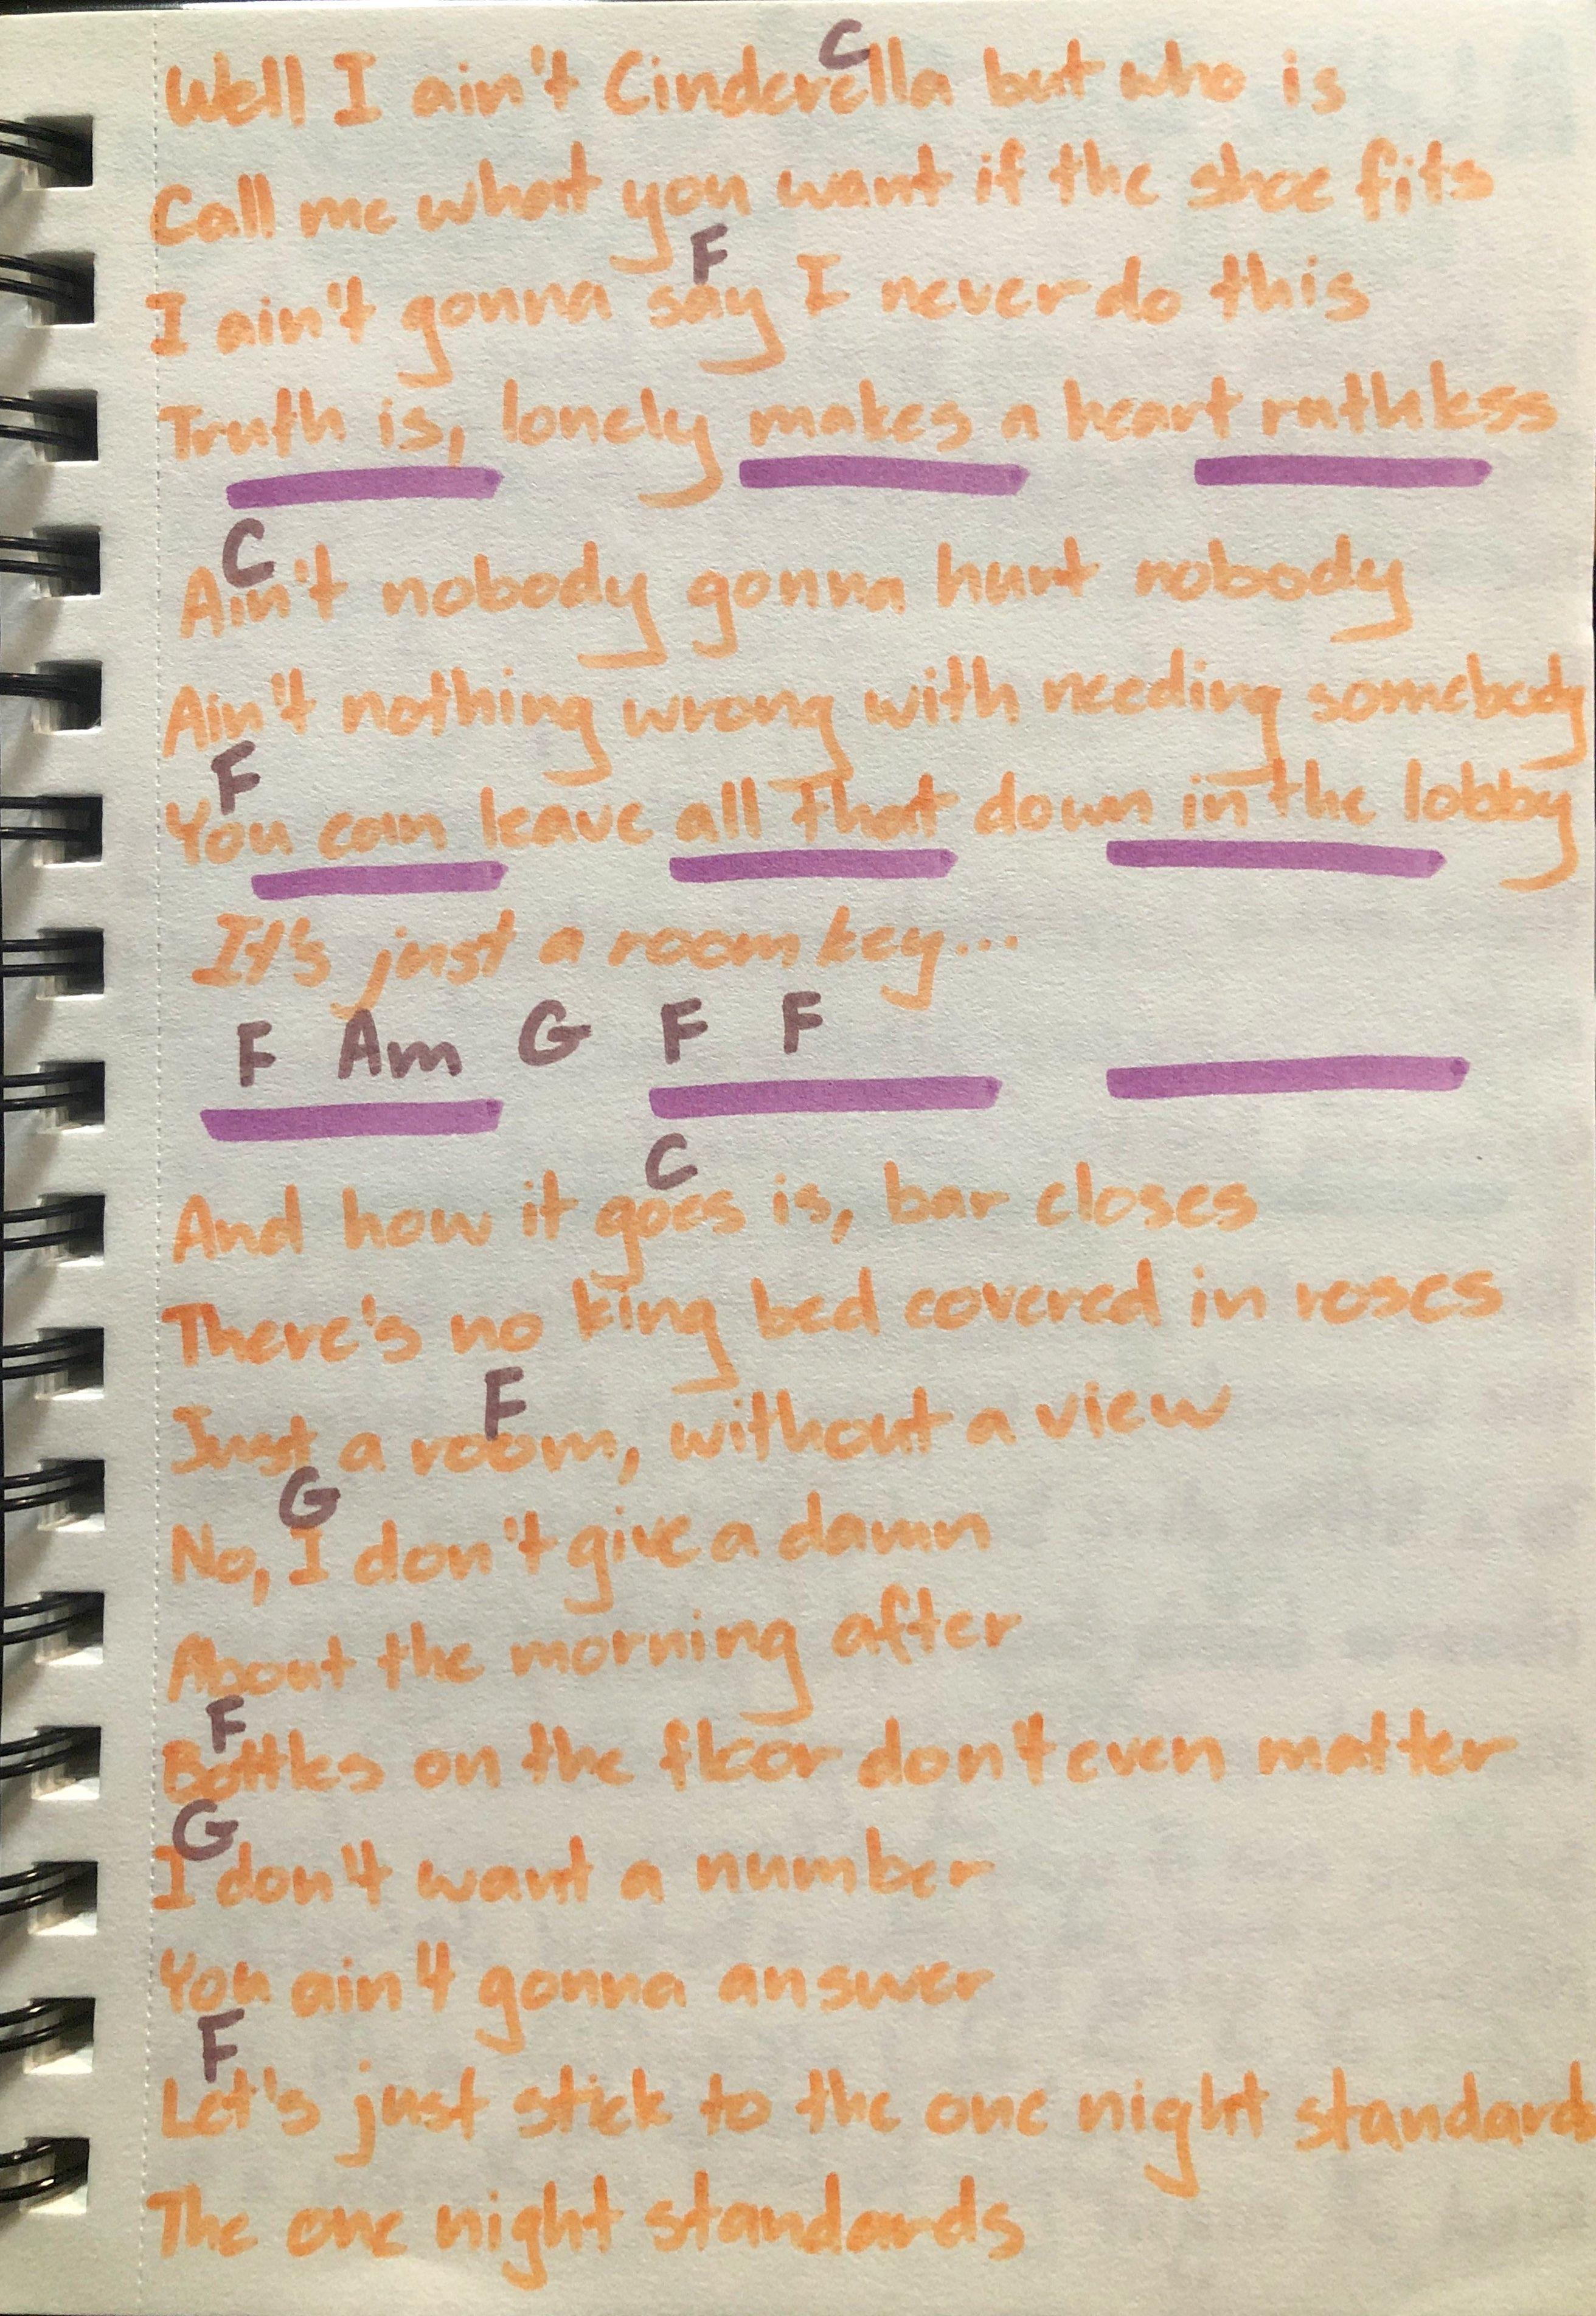 C
Well I ain't Cinderella but who is
Call me what you want if the shoe fits
F
I ain't gonna say I never do this
Truth is, lonely makes a heart ruthless
C
Ain't nobody gonna hurt nobody
Ain't nothing wrong with needing somebody
F
You can leave all that down in the lobby
It's just a room key...
F Am G F F
C
And how it goes is, bar closes
There's no king bed covered in roses
F
Just a room, without a view
G
No, I don't give a damn
About the morning after
F
Bottles on the floor don't even matter
G
I don't want a number
You ain't gonna answer
F
Let's just stick to the one night standard
The one night standards